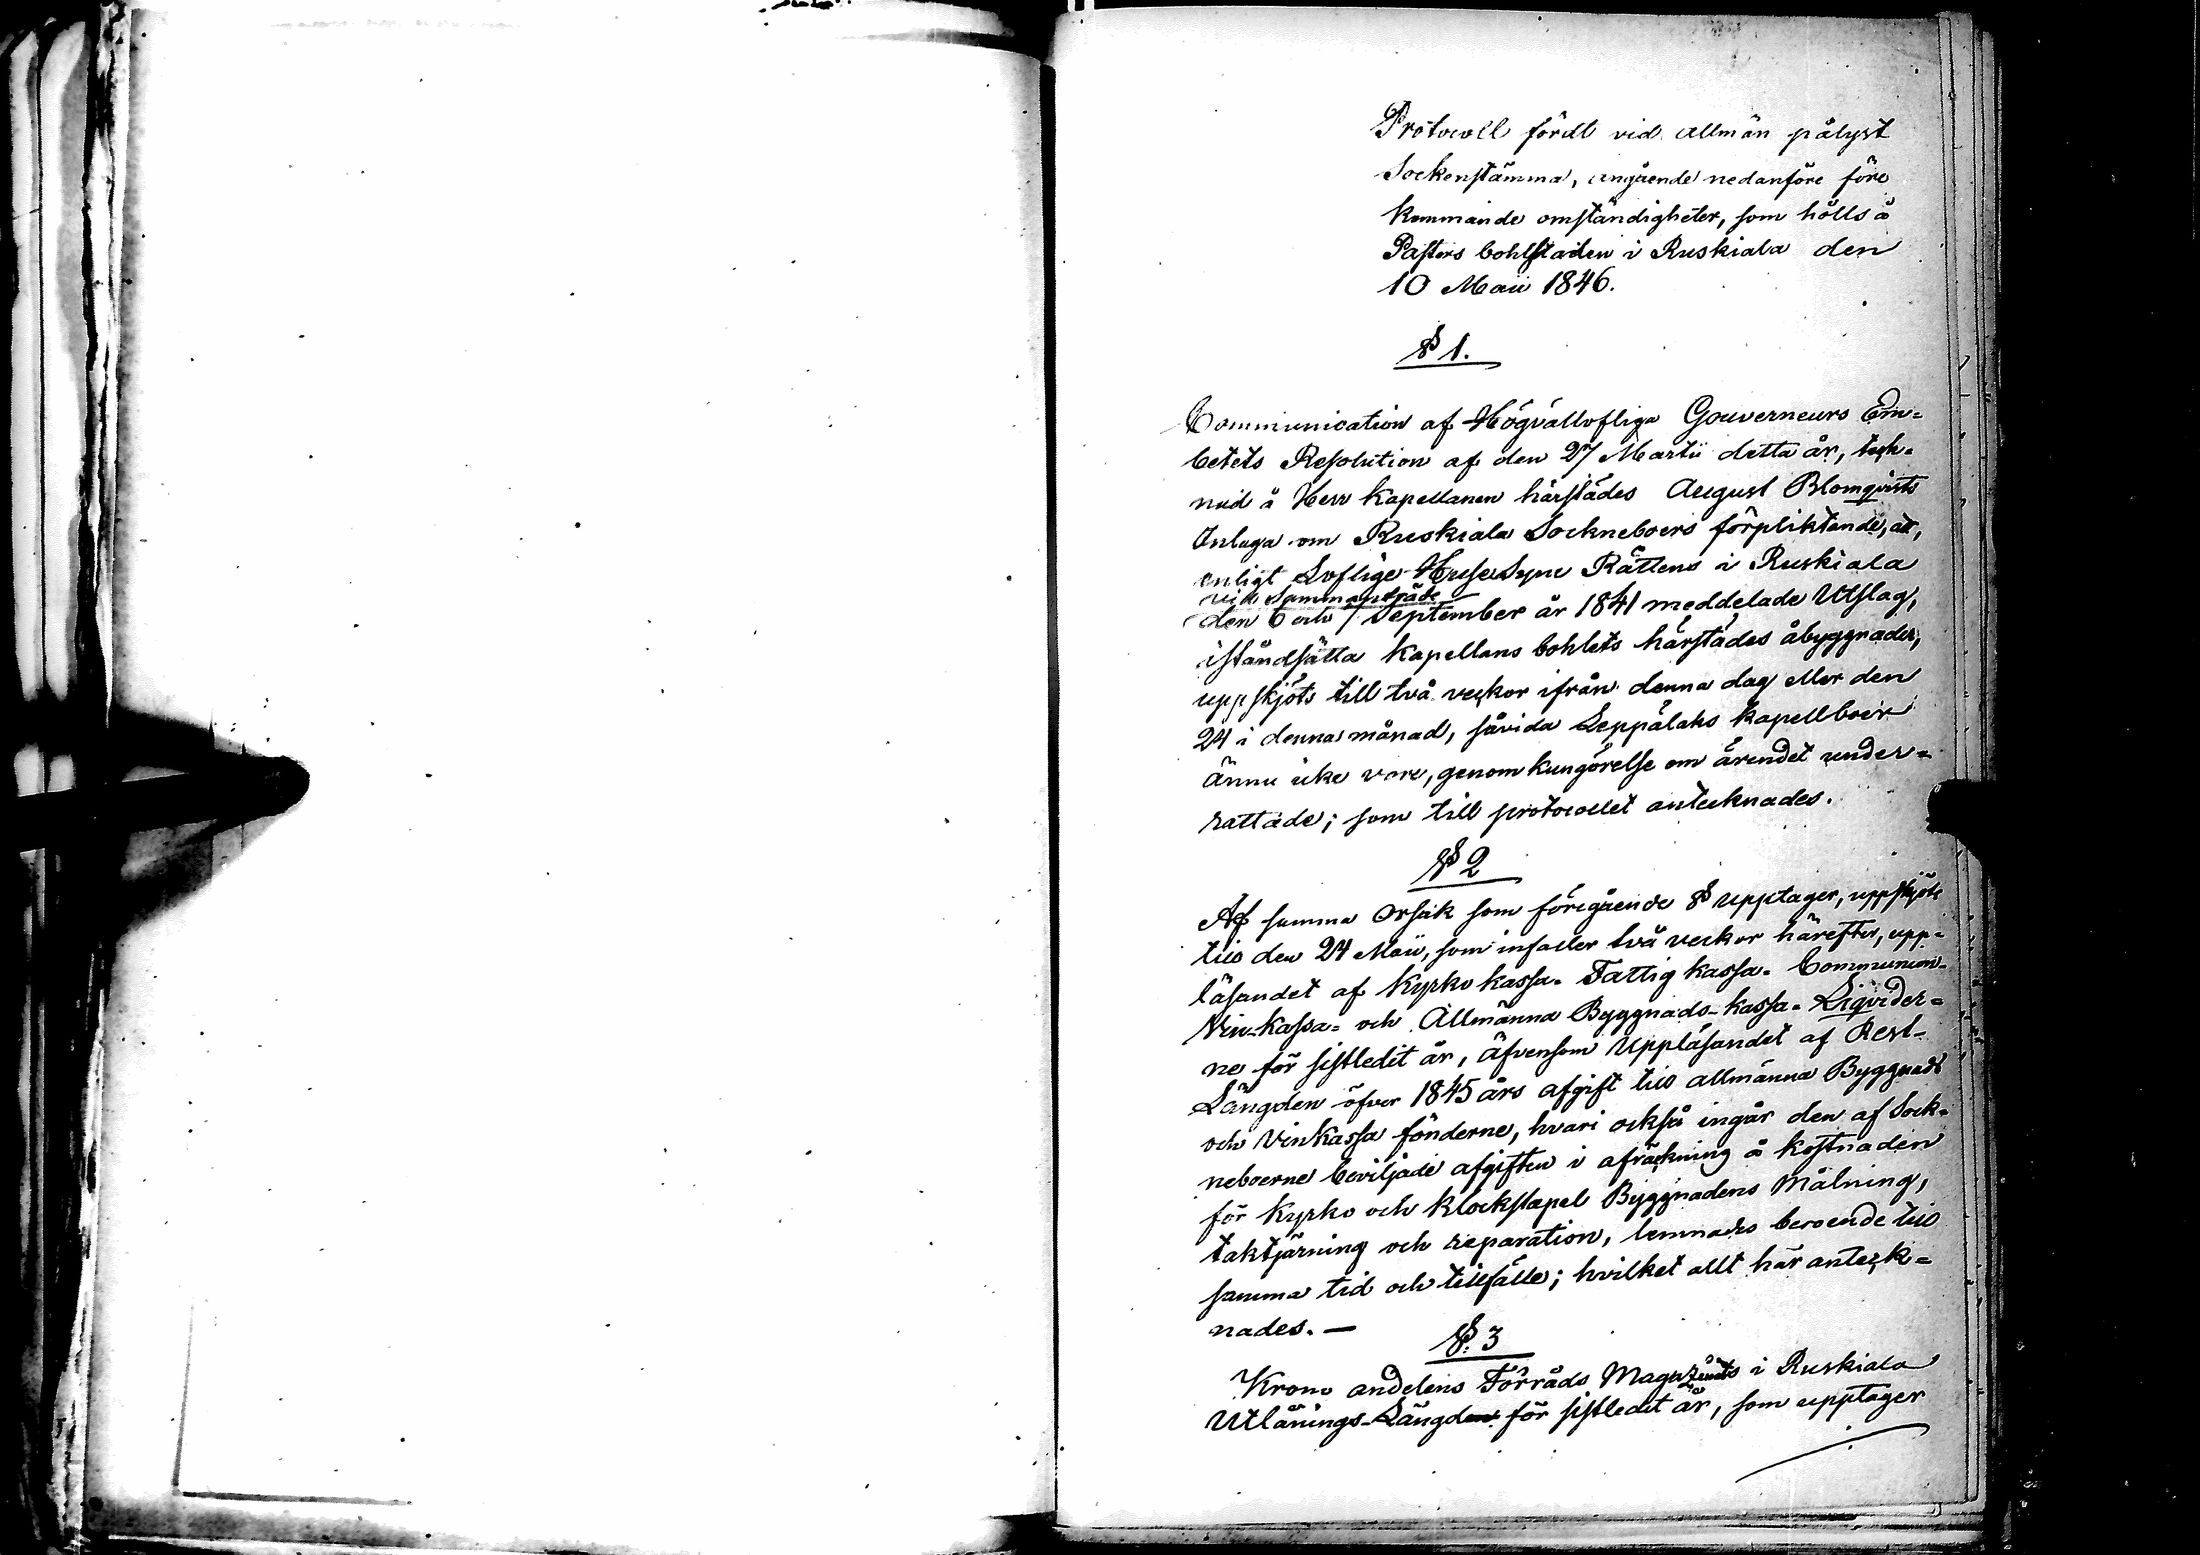 Protocoll fördt vid allmän pålyst
Sockenstämma, angående nedanföre före
kommande omständigheter, som hölls å
Pastors bohlstaden i Ruskiala den
10 Maii 1846.
§ 1.
Communication af Högvällofliga Gouverneurs Em=
betets Resolution af den 27 Martii detta år, teck-
nad å Herr Kapellanen härstädes August Blomqvists
Inlaga om Ruskiala Sockneboers förpliktande, att,
enligt Loflige Huse Syne Rättens i Ruskiala
vid Sammanträde
den 6 och 7 September år 1841 meddelade Utslag,
iståndsätta Kapellans bohlets härstädes åbyggnader,
uppskjöts till två veckor ifrån denna dag eller den
24 i denna månad, såvida Leppälaks kapellboer
ännu icke vore, genom kungörelse om ärendet under=
rättade; som till protocollet antecknades.
§ 2
Af samma Orsak som föregående § upptager, uppskjöts
till den 24 Maii, som infaller två veckor härefter, upp=
läsandet af Kyrko kassa- Fattig kassa- Communion-
Vin-Kassa= och Allmänna Byggnads-kassa- Liqvider=
ne för sistledit år, äfvensom Uppläsandet af Rest-
Längden öfver 1845 års afgift till allmänna Byggnads
och Vinkassa fonderne, hvari också ingår den af Sock-
neboerne beviljade afgiften i afräckning å kostnaden
för Kyrko och Klockstapel Byggnadens Målning,
taktjärning och reparation, lemnades beroende till
samma tid och tillfälle; hvilket allt här anteck=
nades. —
§. 3
Krono andelens Förråds Magazinets i Ruskiala
Utlånings-Längden för sistledit år, som upptager